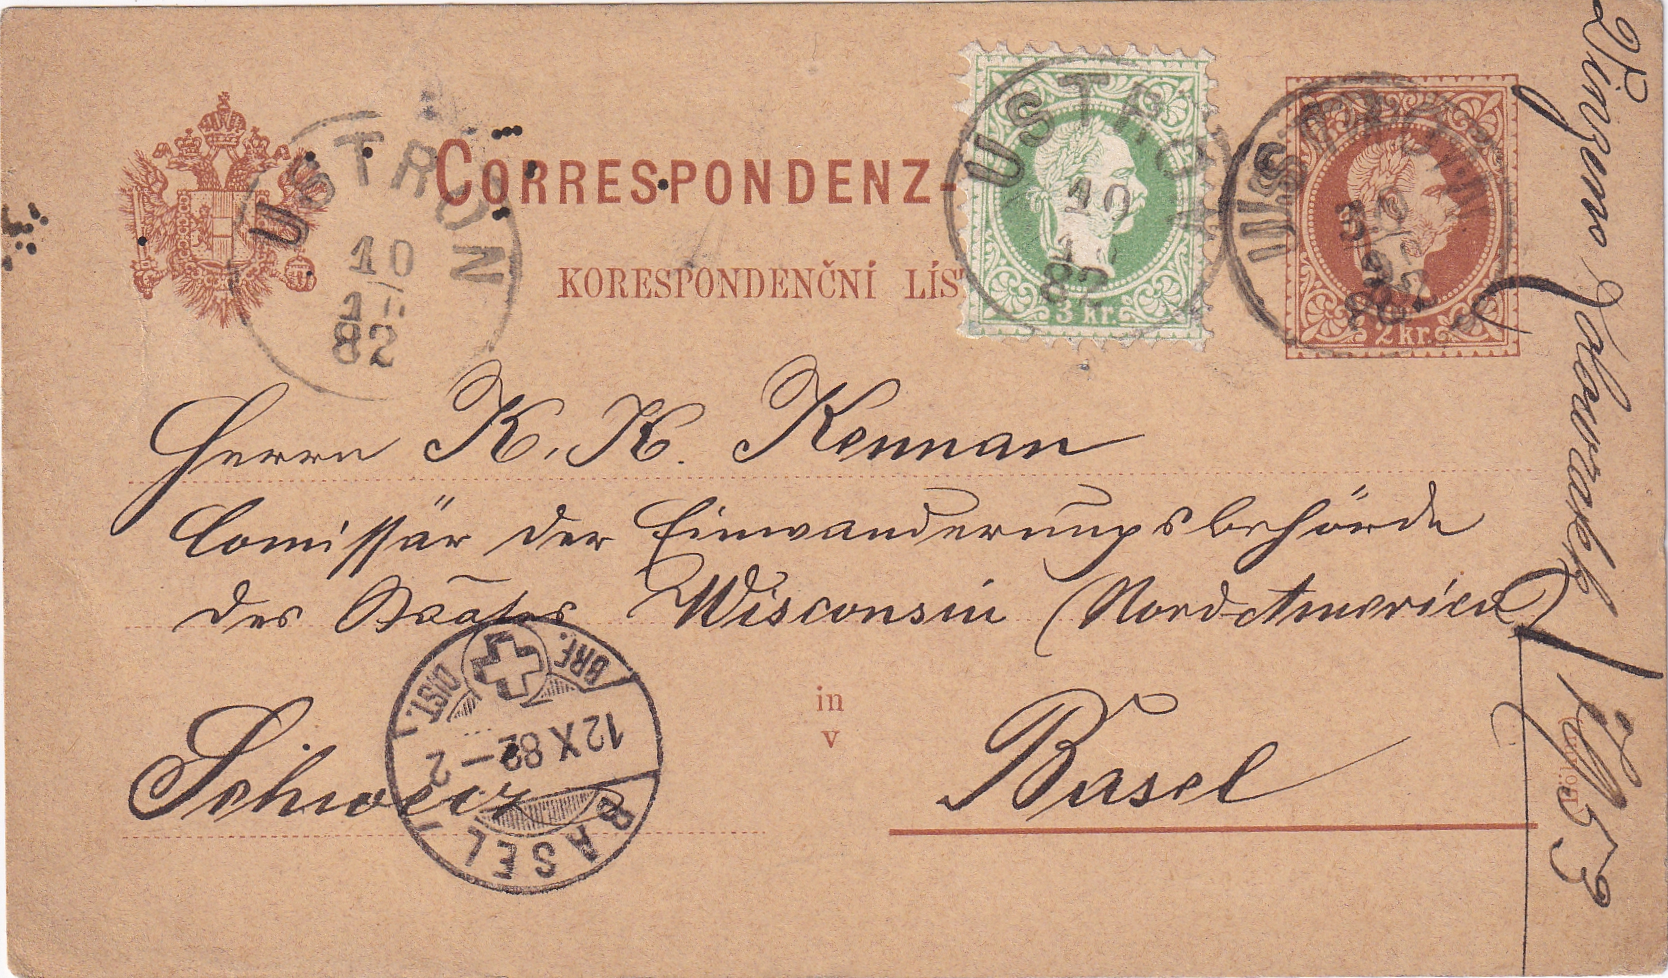 CORRESPONDENZ-
KORESPONDENČNÍ LÍS
USTRON
10
82
USTRON
10
82
3 kr.
2 kr.
Herrn K. K. Kennan
Comissär der Einwanderungsbehörde
des Staates Wisconsin (Nord-America)
in
v
Schweiz
Basel
BASEL
12 X 82 – 2
BRF. DIST.